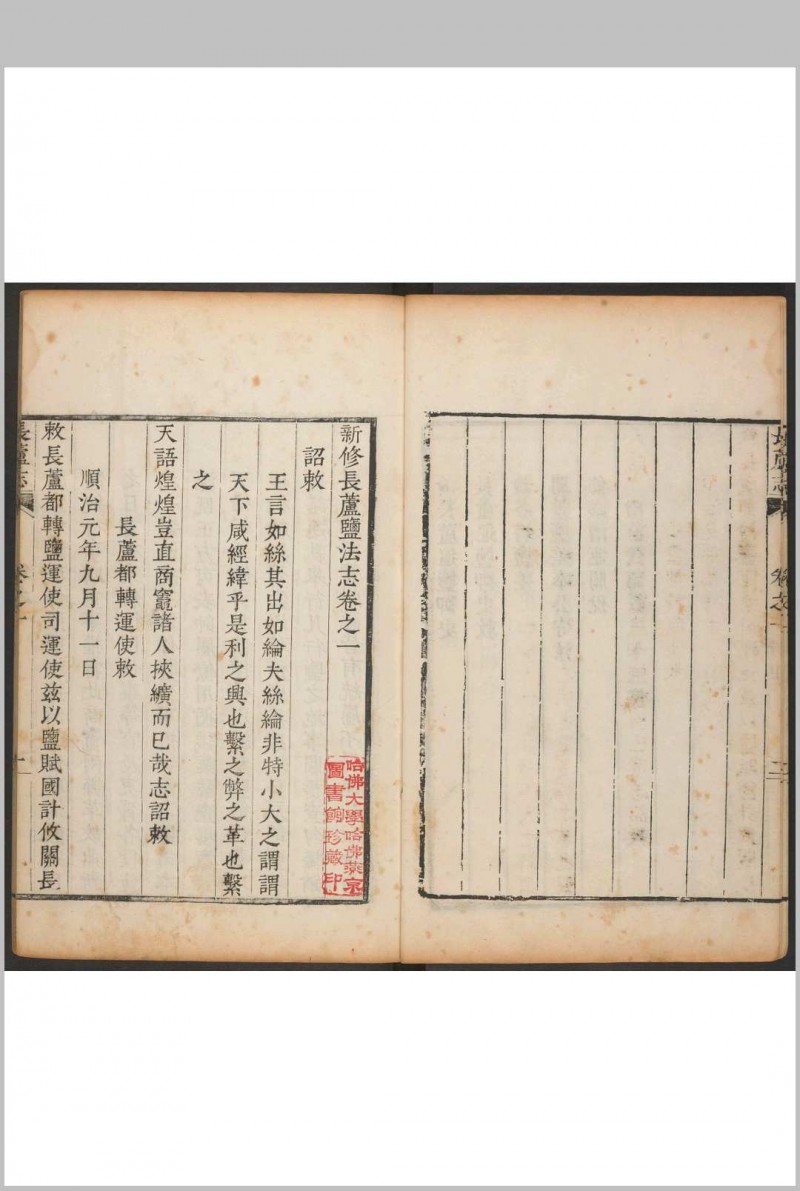 長蘆志
卷之一
二
新修長蘆鹽法志卷之一
詔敕
王言如絲其出如綸夫絲綸非特小大之謂謂
天下咸經緯乎是利之興也繫之弊之革也繫
之
天語煌煌豈直商竈諸人挾纊而已哉志詔敕
長蘆都轉運使敕
順治元年九月十一日
敕長蘆都轉鹽運使司運使茲以鹽賦國計攸關長
長蘆志
卷之一
哈佛大學哈佛燕京
圖書館珍藏印